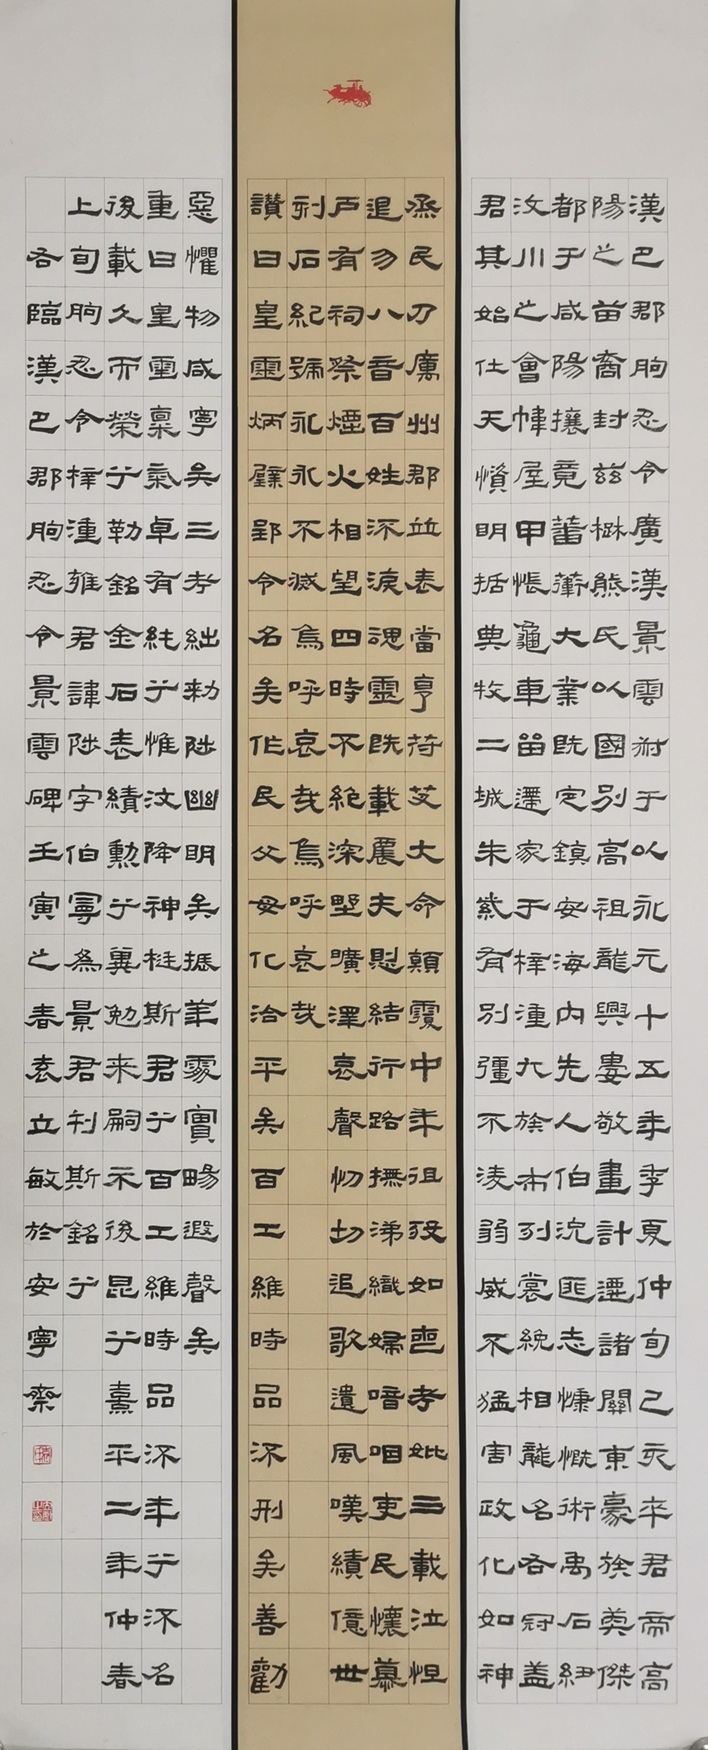 漢巴郡朐忍令廣漢景雲叔于以永元十五年季夏仲旬己亥卒君帝高
陽之苗裔封茲楙熊氏以國別高祖龍興婁敬畫計遷諸關東豪族英傑
都于咸陽攘竟蕃衛大業既定鎮安海內先人伯沇匪志慷慨術禹石紐
汶川之會幃屋甲悵龜車留遷家于梓潼九族布列裳絻相龍名右冠盖
君其始仕天資明括典牧二城朱紫有別彊不凌弱威不猛害政化如神
烝民乃厲州郡並表當亨苻艾大命顛覆中年徂歿如喪考妣三載泣怛
遏勿八音百姓流淚魂靈既載農夫慰結行路撫涕織婦喑咽吏民懷慕
戶有祠祭煙火相望四時不絕深野曠澤哀聲忉切追歌遺風嘆績億世
刻石紀號永永不滅烏呼哀哉烏呼哀哉
讚曰皇靈炳璧郢令名矣作民父母化洽平矣百工維時品流刑矣善勸
惡懼物咸寧矣三考絀勑陟幽明矣振華處實暘遐聲矣
重曰皇靈稟氣卓有純兮惟汶降神梃斯君兮百工維時品流年兮流名
後載久而榮兮勒銘金石表績勳兮冀勉來嗣示後昆兮熹平二年仲春
上旬朐忍令梓潼雍君諱陟字伯寧為景君刊斯銘兮
右臨漢巴郡朐忍令景雲碑壬寅之春袁立敏於安寧齋